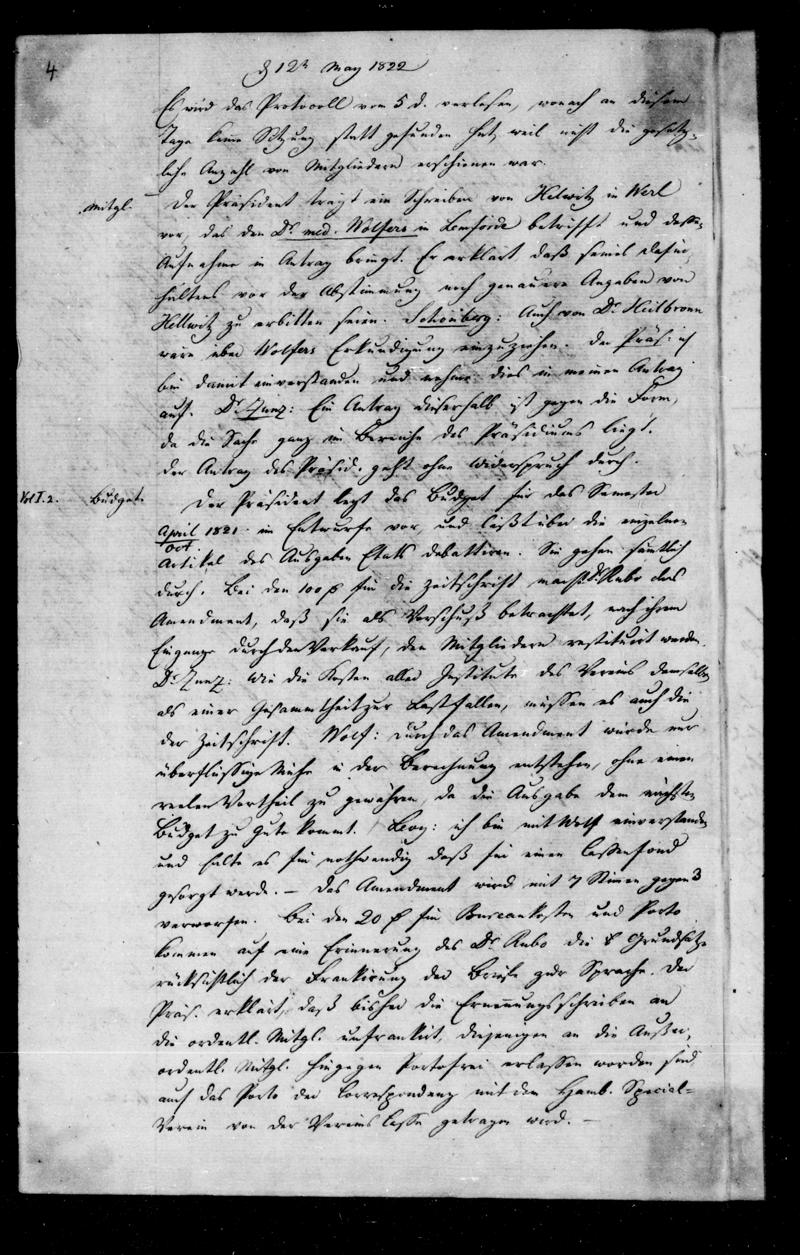 4
d 12t May 1822
Es wird das Protocoll vom 5 d. verlesen, wonach an diesem
Tage keine Sitzung statt gefunden hat, weil nicht die gesetz-
liche Anzahl von Mitgliedern erschienen war.
Mitgl.
Der Präsident trägt ein Schreiben von Helwitz in Werl
vor, das den Dr. med. Wolfers in Lemförde betrifft und dessen
Aufnahme in Antrag bringt. Er erklärt daß seines Dafür-
haltens vor der Abstimmung noch genauere Angaben von
Hellwitz zu erbitten seien. Schönberg: Auch von Dr. Heilbronn
wäre über Wolfers Erkundigung einzuziehen. Der Präs: ich
bin damit einverstanden und nehme dies in meinen Antrag
auf. Dr. Zunz: Ein Antrag dieserhalb ist gegen die Form,
da die Sache ganz im Bereiche des Präsidiums liegt.
Der Antrag des Präsid. geht ohne Widerspruch durch.
Vol I. 2.
Budget.
Der Präsident legt das Budget für das Semester
April 1821 im Entwurfe vor, und läßt über die einzelnen
Oct
Artikel des Ausgaben Etats debattiren. Sie gehen sämtlich
durch. Bei den 100 für die Zeitschrift macht Dr. Rubo das
Amendment, daß sie als Vorschuß betrachtet, nach ihrem
Eingange durch den Verkauf, den Mitgliedern restituirt werden.
Dr. Zunz: Wie die Kosten aller Institute des Vereins demselben
als einer Gesammtheit zur Last fallen, müssen es auch die
der Zeitschrift. Wolf: Durch das Amendment würde nur
überflüssige Mühe in der Berechnung entstehen, ohne einen
reelen Vortheil zu gewähren, da die Ausgabe dem nächsten
Budget zu Gute kommt. Levy: ich bin mit Wolf einverstanden
und halte es für nothwendig daß für einen Cassenfond
gesorgt werde. – Das Amendment wird mit 7 Stimen gegen 3
verworfen. Bei den 20 für Bureaukosten und Porto
kommen auf eine Erinnerung des Dr. Rubo die Grundsätze
rücksichtlich der Frankirung der Briefe zur Sprache. Der
Präs. erklärt, daß bisher die Ernennungsschreiben an
die ordentl. Mitgl. unfrankirt, diejenigen an die Außer-
ordentl. Mitgl. hingegen Portofrei erlassen worden sind
auch das Porto der Correspondenz mit dem Hamb. Special-
Verein von der Vereins Casse getragen wird. –